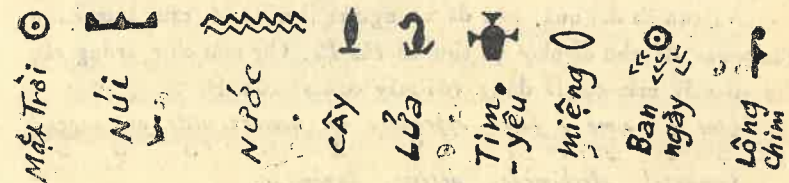 Mặt Trời
Núi
Nước
Cây
Lửa
Tim.
- yêu
miệng
Ban
ngày
Lông
chim